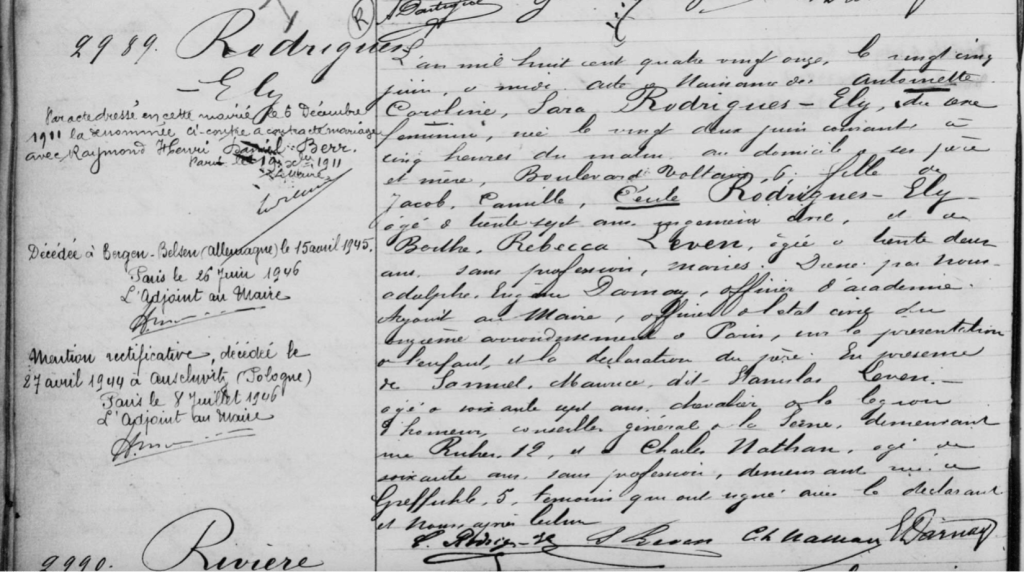 2989. Rodrigues
— Ely
Par acte dressé en cette mairie le 6 Décembre
1911 la dénommée ci-contre a contracté mariage
avec Raymond Henri Berr.
Paris le 1911
Décédée à Bergen-Belsen (Allemagne) le 15 avril 1945.
Paris le 26 Juin 1946
L'Adjoint au Maire
Mention rectificative, décédée le
27 avril 1944 à Auschwitz (Pologne)
Paris le 8 Juillet 1946
L'Adjoint au Maire
R
L'an mil huit cent quatre vingt onze, le vingt cinq
juin, à midi, acte de Naissance de Antoinette
Caroline, Sara Rodrigues-Ely, du sexe
féminin, née le vingt deux juin courant, à
cinq heures du matin, au domicile de ses père
et mère, Boulevard Voltaire, 6, fille de
Jacob, Camille, Rodrigues-Ely
âgé de trente sept ans, ingénieur et de
Berthe, Rebecca Leven, âgée de trente deux
ans, sans profession, mariés. Dressé par Nous
Adolphe, Eugène Darnay, officier d'académie.
Adjoint au Maire, officier de l'état civil du
onzième arrondissement de Paris, sur la présentation
de l'enfant, et la déclaration du père. En présence
de Samuel, Maurice, dit Stanislas Leven. —
âgé de soixante ans, chevalier de la légion
d'honneur, conseiller général de la Seine, demeurant
rue 12, et de Charles Nathan, âgé de
soixante ans, sans profession, demeurant rue
Greffuhle, 5, témoins qui ont signé avec le déclarant
et Nous après lecture
S Leven Ch Nathan E Darnay
2990. Rivière